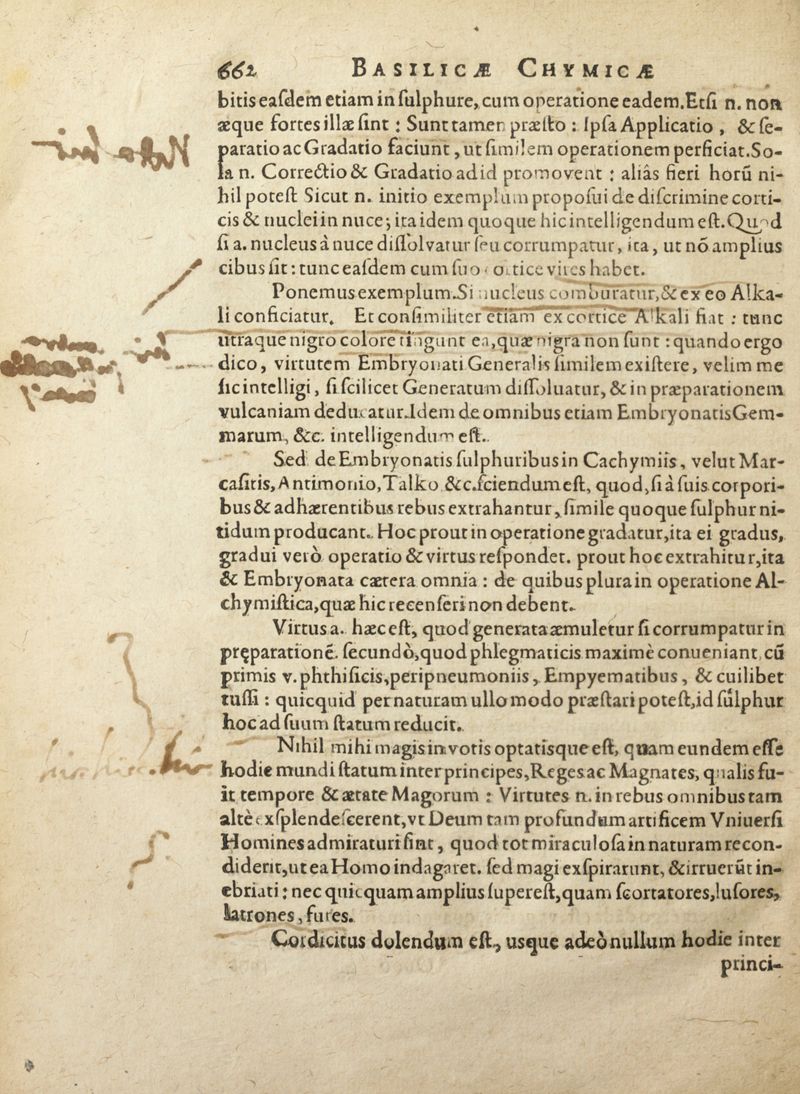 662 BASILICÆ CHYMICÆ
bitis easdem etiam in sulphure, cum operatione eadem. Etsi n. non
æque fortes illæ sint : Sunt tamen præsto : Ipsa Applicatio , & se-
paratio ac Gradatio faciunt , ut similem operationem perficiat. So-
la n. Correctio & Gradatio ad id promovent : aliâs fieri horũ ni-
hil potest Sicut n. initio exemplum proposui de discrimine corti-
cis & nuclei in nuce; ita idem quoque hic intelligendum est. Quod
si a. nucleus à nuce dissolvatur seu corrumpatur, ita , ut nõ amplius
cibus sit : tunc easdem cum suo cortice vires habet.
Ponemus exemplum. Si nucleus comburatur, & ex eo Alka-
li conficiatur. Et consimiliter etiam ex cortice Alkali fiat : tunc
utraque nigro colore tingunt ea, quæ nigra non sunt : quando ergo
dico , virtutem Embryonati Generalis similem existere, velim me
sic intelligi , si scilicet Generatum dissoluatur, & in præparationem
vulcaniam deducatur. Idem de omnibus etiam Embryonatis Gem-
marum, &c. intelligendum est.
Sed de Embryonatis sulphuribus in Cachymiis , velut Mar-
casitis, Antimonio, Talko &c. sciendum est, quod, si à suis corpori-
bus & adhærentibus rebus extrahantur, simile quoque sulphur ni-
tidum producant. Hoc prout in operatione gradatur, ita ei gradus,
gradui verò operatio & virtus respondet. prout hoc extrahitur, ita
& Embryonata cætera omnia : de quibus plura in operatione Al-
chymistica, quæ hic recenseri non debent.
Virtus a. hæc est, quod generata æmuletur si corrumpatur in
pręparationẽ. secundò, quod phlegmaticis maximè conueniant, cũ
primis v. phthisicis, peripneumoniis , Empyematibus , & cuilibet
tussi : quicquid per naturam ullo modo præstari potest, id sulphur
hoc ad suum statum reducit.
Nihil mihi magis in votis optatisque est, quam eundem esse
hodie mundi statum inter principes, Reges ac Magnates, qualis fu-
it tempore & ætate Magorum : Virtutes n. in rebus omnibus tam
altè exsplendescerent, vt Deum tam profundum artificem Vniuersi
Homines admiraturi sint , quod tot miraculosa in naturam recon-
diderit, ut ea Homo indagaret. sed magi exspirarunt, & irruerũt in-
ebriati : nec quicquam amplius superest, quam scortatores, lusores,
latrones , fures.
Cordicitus dolendum est, usque adeò nullum hodie inter
princi-